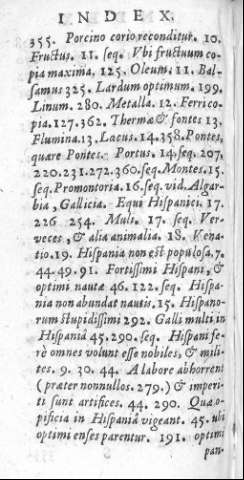 INDEX.
355. Porcino corio reconditur. 10.
Fructus. 11. seq. Vbi fructuum co-
pia maxima, 125. Oleum. 11. Bal-
samus 325. Lardum optimum. 199.
Linum. 280. Metalla. 12. Ferri co-
pia. 127. 362. Thermæ & fontes 13.
Flumina. 13. Lacus. 14. 358. Pontes,
quare Pontes. Portus. 14. seq. 207.
220. 231. 272. 360. seq. Montes. 15.
seq. Promontoria. 16. seq. vid. Algar-
bia, Gallicia. Equi Hispanici. 17.
226 254. Muli. 17. seq. Ver-
veces, & alia animalia. 18. Vena-
tio. 19. Hispania non est populosa. 7.
44. 49. 91. Fortissimi Hispani, &
optimi nautæ 46. 122. seq. Hispa-
nia non abundat nautis. 15. Hispano-
rum stupidissimi 292. Galli multi in
Hispaniâ 45. 290. seq. Hispani fe-
rè omnes volunt esse nobiles, & mili-
tes. 9. 30. 44. A labore abhorrent
(præter nonnullos. 279.) & imperi-
ti sunt artifices. 44. 290. Quæ o-
pificia in Hispaniâ vigeant. 45. ubi
optimi enses parentur. 191. optimi
pan-